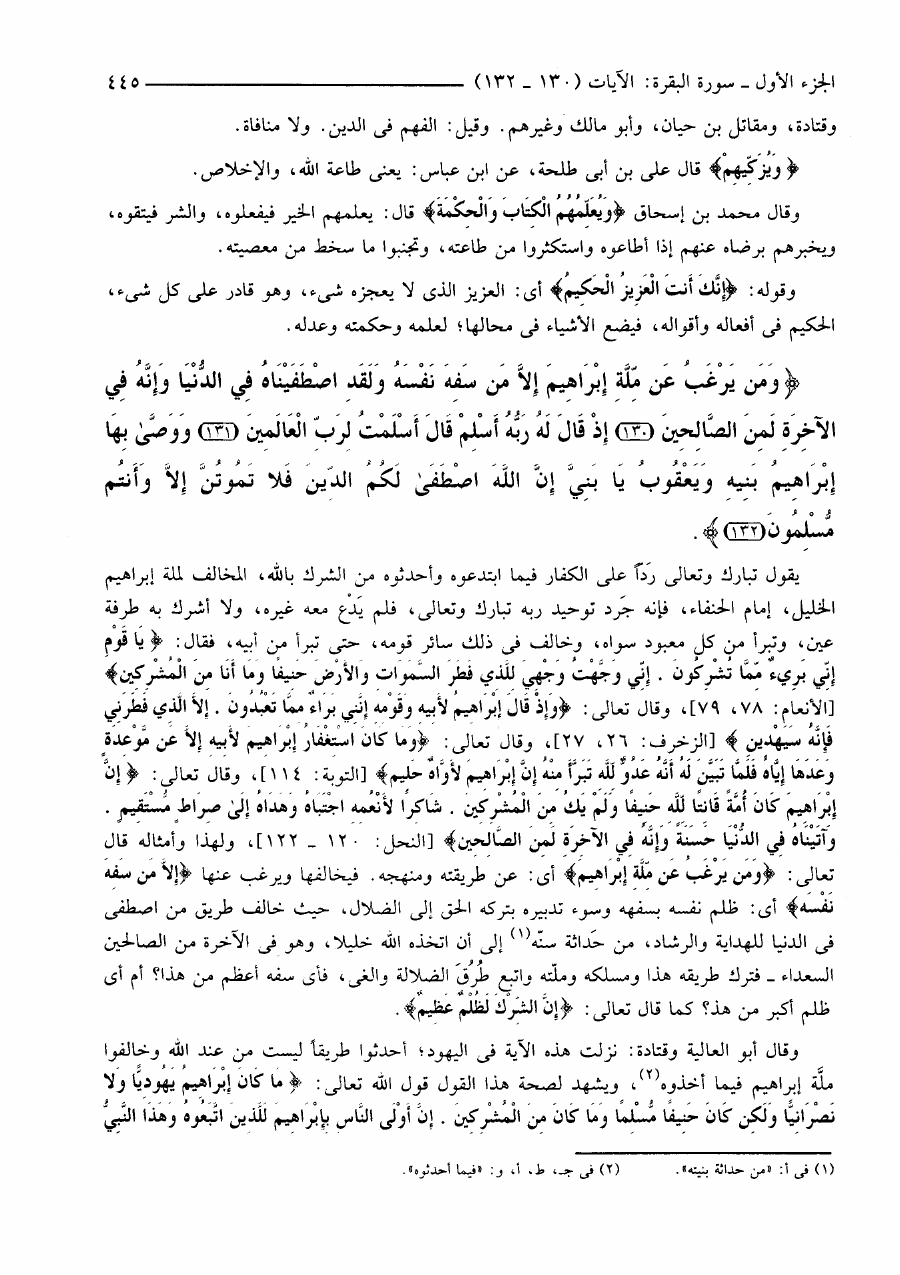 الجزء الأول ـ سورة البقرة: الآيات (١٣٠ ـ ١٣٢) ٤٤٥
وقتادة، ومقاتل بن حيان، وأبو مالك وغيرهم. وقيل: الفهم فى الدين. ولا منافاة.
﴿ وَيُزَكِّيهِمْ﴾ قال على بن أبى طلحة، عن ابن عباس: يعنى طاعة الله، والإخلاص.
وقال محمد بن إسحاق ﴿وَيُعَلِّمُهُمُ الْكِتَابَ وَالْحِكْمَةَ﴾ قال: يعلمهم الخير فيفعلوه، والشر فيتقوه،
ويخبرهم برضاه عنهم إذا أطاعوه واستكثروا من طاعته، وتجنبوا ما سخط من معصيته.
وقوله: ﴿إِنَّكَ أَنتَ الْعَزِيزُ الْحَكِيمُ﴾ أى: العزيز الذى لا يعجزه شىء، وهو قادر على كل شىء،
الحكيم فى أفعاله وأقواله، فيضع الأشياء فى محالها؛ لعلمه وحكمته وعدله.
﴿ وَمَن يَرْغَبُ عَن مِّلَّةِ إِبْرَاهِيمَ إِلاَّ مَن سَفِهَ نَفْسَهُ وَلَقَدِ اصْطَفَيْنَاهُ فِي الدُّنْيَا وَإِنَّهُ فِي
الآخِرَةِ لَمِنَ الصَّالِحِينَ (١٣٠) إِذْ قَالَ لَهُ رَبُّهُ أَسْلِمْ قَالَ أَسْلَمْتُ لِرَبِّ الْعَالَمِينَ (١٣١) وَوَصَّىٰ بِهَا
إِبْرَاهِيمُ بَنِيهِ وَيَعْقُوبُ يَا بَنِيَّ إِنَّ اللَّهَ اصْطَفَىٰ لَكُمُ الدِّينَ فَلا تَمُوتُنَّ إِلاَّ وَأَنتُم
مُّسْلِمُونَ (١٣٢)﴾.
يقول تبارك وتعالى رَدّاً على الكفار فيما ابتدعوه وأحدثوه من الشرك بالله، المخالف لملة إبراهيم
الخليل، إمام الحنفاء، فإنه جَرد توحيد ربه تبارك وتعالى، فلم يَدْع معه غيره، ولا أشرك به طرفة
عين، وتبرأ من كل معبود سواه، وخالف فى ذلك سائر قومه، حتى تبرأ من أبيه، فقال: ﴿ يَا قَوْمِ
إِنِّي بَرِيءٌ مِّمَّا تُشْرِكُونَ . إِنِّي وَجَّهْتُ وَجْهِيَ لِلَّذِي فَطَرَ السَّمَوَاتِ وَالأَرْضَ حَنِيفًا وَمَا أَنَا مِنَ الْمُشْرِكِينَ﴾
[الأنعام: ٧٨، ٧٩]، وقال تعالى: ﴿وَإِذْ قَالَ إِبْرَاهِيمُ لأَبِيهِ وَقَوْمِهِ إِنَّنِي بَرَاءٌ مِّمَّا تَعْبُدُونَ . إِلاَّ الَّذِي فَطَرَنِي
فَإِنَّهُ سَيَهْدِينِ ﴾ [الزخرف: ٢٦، ٢٧]، وقال تعالى: ﴿وَمَا كَانَ اسْتِغْفَارُ إِبْرَاهِيمَ لأَبِيهِ إِلاَّ عَن مَّوْعِدَةٍ
وَعَدَهَا إِيَّاهُ فَلَمَّا تَبَيَّنَ لَهُ أَنَّهُ عَدُوٌّ لِلَّهِ تَبَرَّأَ مِنْهُ إِنَّ إِبْرَاهِيمَ لأَوَّاهٌ حَلِيمٌ﴾ [التوبة: ١١٤]، وقال تعالى: ﴿ إِنَّ
إِبْرَاهِيمَ كَانَ أُمَّةً قَانِتًا لِلَّهِ حَنِيفًا وَلَمْ يَكُ مِنَ الْمُشْرِكِينَ . شَاكِرًا لأَنْعُمِهِ اجْتَبَاهُ وَهَدَاهُ إِلَىٰ صِرَاطٍ مُّسْتَقِيمٍ .
وَآتَيْنَاهُ فِي الدُّنْيَا حَسَنَةً وَإِنَّهُ فِي الآخِرَةِ لَمِنَ الصَّالِحِينَ﴾ [النحل: ١٢٠ ـ ١٢٢]، ولهذا وأمثاله قال
تعالى: ﴿وَمَن يَرْغَبُ عَن مِّلَّةِ إِبْرَاهِيمَ﴾ أى: عن طريقته ومنهجه. فيخالفها ويرغب عنها ﴿إِلاَّ مَن سَفِهَ
نَفْسَهُ﴾ أى: ظلم نفسه بسفهه وسوء تدبيره بتركه الحق إلى الضلال، حيث خالف طريق من اصطفى
فى الدنيا للهداية والرشاد، من حَداثة سنّه(١) إلى أن اتخذه الله خليلا، وهو فى الآخرة من الصالحين
السعداء ـ فترك طريقه هذا ومسلكه وملّته واتبع طُرُقَ الضلالة والغى، فأى سفه أعظم من هذا؟ أم أى
ظلم أكبر من هذ؟ كما قال تعالى: ﴿إِنَّ الشِّرْكَ لَظُلْمٌ عَظِيمٌ﴾.
وقال أبو العالية وقتادة: نزلت هذه الآية فى اليهود؛ أحدثوا طريقاً ليست من عند الله وخالفوا
ملَّة إبراهيم فيما أخذوه(٢)، ويشهد لصحة هذا القول قول الله تعالى: ﴿ مَا كَانَ إِبْرَاهِيمُ يَهُودِيًّا وَلا
نَصْرَانِيًّا وَلَكِن كَانَ حَنِيفًا مُّسْلِمًا وَمَا كَانَ مِنَ الْمُشْرِكِينَ . إِنَّ أَوْلَى النَّاسِ بِإِبْرَاهِيمَ لَلَّذِينَ اتَّبَعُوهُ وَهَذَا النَّبِيُّ
(١) فى أ: «من حداثة بنيته». (٢) فى جـ، ط، أ، و: «فيما أحدثوه».